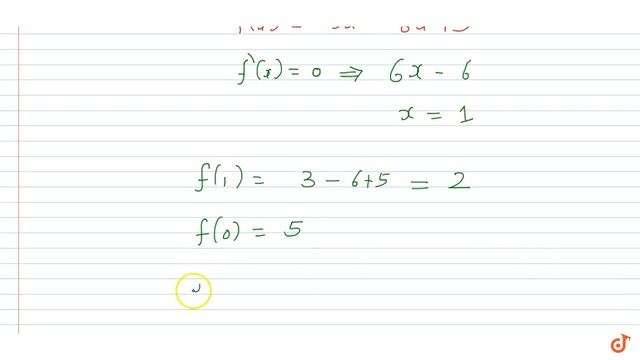 f'(x) = 0 ⇒ 6x - 6
x = 1
f(1) = 3 - 6+5 = 2
f(0) = 5